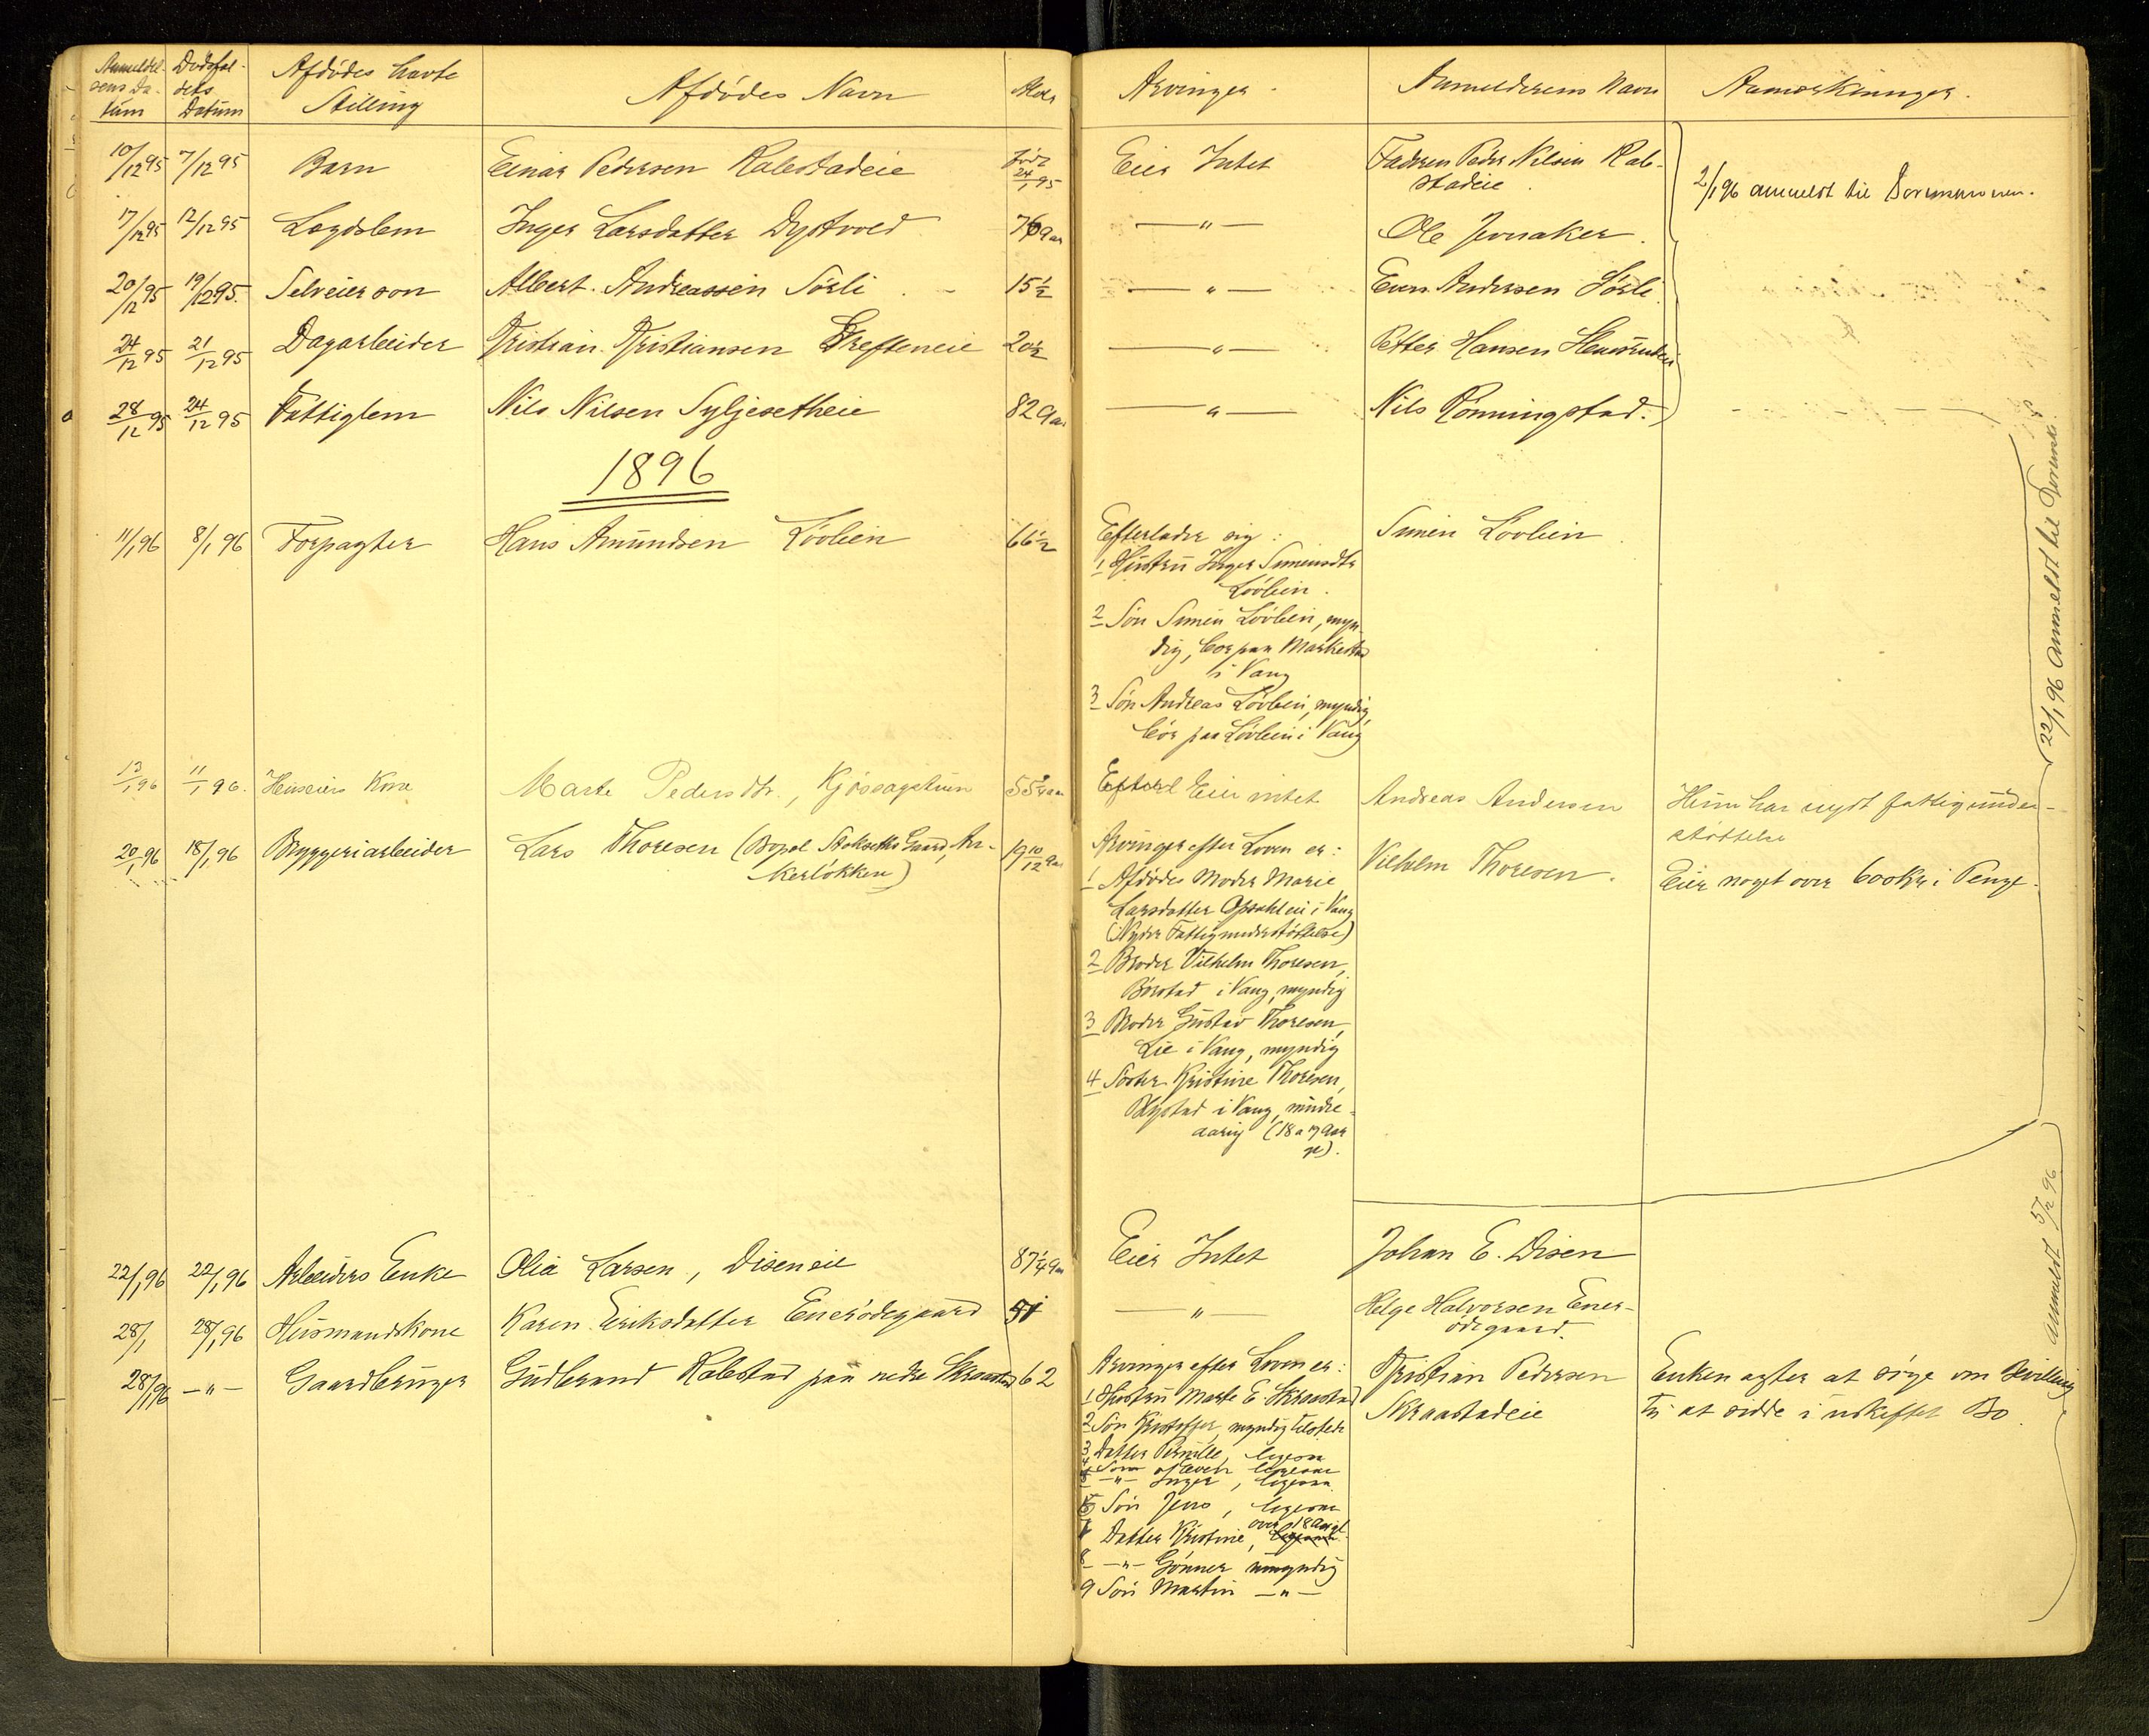 Anmeldel-
sens Da-
tum
Dødsfal-
dets
Datum
Afdødes havte
Stilling
Afdødes Navn
Alder
Arvinger
Anmelderens Navn
Anmærkninger.
10/12 95 7/12 95 Barn Einar Pedersen Kabestadeie født 24/1 95 Eier Intet Faderen Peder Nilsen Kab-
stadeie
2/1 96 anmeldt til
17/12 95 12/12 95 Lægdslem Inger Larsdatter Dystvold 76 aar — " — Ole Jønsaker.
20/12 95 19/12 95. Selveierson Albert Andreassen Sørli 15 1/2 — " — Even Andersen Sørli
24/12 95 21/12 95 Dagarbeider Kristian Kristiansen Grefteneie 20 1/2 — " — Petter Hansen
28/12 95 24/12 95 Fattiglem Nils Nilsen Syljesetheie 82 aar — " — Nils Rønningstad.
1896
11/1 96 8/1 96 Forpagter Hans Amundsen Løvlien 66 1/2 Efterlader sig: Simen Løvlien
1 Hustru Inger Simensdtr
Løvlien.
2 Søn Simen Løvlien, myn-
dig, bor paa Markestad
i Vang
3 Søn Andreas Løvlien, myndig,
bor paa Løvlien i Vang
22/1 96 anmeldt til
13/1 96 11/1 96. Huseiers Kone Marte Pedersdtr., Kjøssagstuen 55 3/4 aar Efterl Eier intet Andreas Andersen Hun har nydt fattigunder-
støttelse
20/1 96 18/1 96 Bryggeriarbeider Lars Thoresen (Bopel Stokseths Gaard, An-
kerløkken) 19 10/12 aar Arvinger efter Loven er: Vilhelm Thoresen. Eier noget over 600 Kr i Penge.
1 Afdødes Moder Marie
Larsdatter Opsahleie i Vang
(Nyder Fattigunderstøttelse)
2 Broder Vilhelm Thoresen,
Børstad i Vang, myndig
3 Broder Gustav Thoresen,
Lie i Vang, myndig
4 Søster Kristine Thoresen,
Blystad i Vang, mindre-
aarig (18 a 19 Aar
gl).
22/1 96 22/1 96 Arbeiders Enke Olia Larsen, Diseneie 87 1/4 aar Eier Intet Johan E. Disen
anmeldt 5/2 96
28/1 28/1 96 Husmandskone Karen Eriksdatter Enerødegaard 51 — " — Helge Halvorsen Ener-
ødegaard.
28/1 96 — " — Gaardbruger Gudbrand Kabstad paa nedre Skraastad 62 Arvinger efter Loven er: Kristian Pedersen Enken agter at søge om Bevilling
1 Hustru Marte E. Skraastad Skraastadeie til at sidde i uskiftet Bo
2 Søn Kristoffer, myndig tilstede
3 Datter Pernille, ligesaa
ligesaa
— " — Inger, ligesaa
6 Søn Jens, ligesaa
over 18 Aar gl.
7 Datter Kristine, ligesaa
8 — " — Gønner umyndig
9 Søn Martin — " —